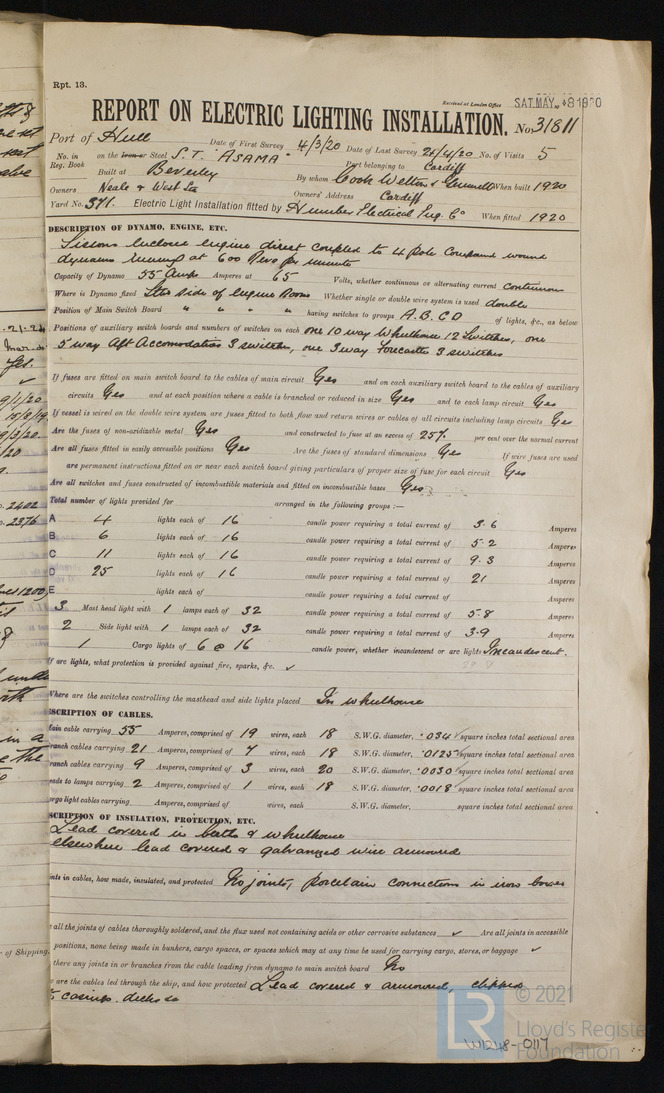 Rpt. 13.
Received at London Office SAT. MAY. 8 1920
REPORT ON ELECTRIC LIGHTING INSTALLATION. No. 31811
Port of Hull Date of First Survey 4/3/20 Date of Last Survey 24/4/20 No. of Visits 5
No. in Reg. Book on the Iron or Steel S.T. "ASAMA" Port belonging to Cardiff
Built at Beverley By whom Cook Welton & Gemmell When built 1920
Owners Neale & West Ltd Owners' Address Cardiff
Yard No. 371. Electric Light Installation fitted by Humber Electrical Eng. Co When fitted 1920
DESCRIPTION OF DYNAMO, ENGINE, ETC.
Sissons enclosed engine direct coupled to 4 pole Compound wound
dynamo running at 600 Revs per minute
Capacity of Dynamo 55 Amps Amperes at 65 Volts, whether continuous or alternating current continuous
Where is Dynamo fixed Stbd side of Engine Room Whether single or double wire system is used double
Position of Main Switch Board " " " " having switches to groups A.B.C.D of lights, &c., as below
Positions of auxiliary switch boards and numbers of switches on each one 10 way Wheelhouse 12 Switches, one
5 way Aft Accomodation 3 switches, one 3 way Forecastle 3 switches
If fuses are fitted on main switch board to the cables of main circuit Yes and on each auxiliary switch board to the cables of auxiliary
circuits Yes and at each position where a cable is branched or reduced in size Yes and to each lamp circuit Yes
If vessel is wired on the double wire system are fuses fitted to both flow and return wires or cables of all circuits including lamp circuits Yes
Are the fuses of non-oxidizable metal Yes and constructed to fuse at an excess of 25% per cent over the normal current
Are all fuses fitted in easily accessible positions Yes Are the fuses of standard dimensions Yes If wire fuses are used
are permanent instructions fitted on or near each switch board giving particulars of proper size of fuse for each circuit Yes
Are all switches and fuses constructed of incombustible materials and fitted on incombustible bases Yes
Total number of lights provided for arranged in the following groups :—
A 4 lights each of 16 candle power requiring a total current of 3.6 Amperes
B 6 lights each of 16 candle power requiring a total current of 5.2 Amperes
C 11 lights each of 16 candle power requiring a total current of 9.3 Amperes
D 25 lights each of 16 candle power requiring a total current of 21 Amperes
E lights each of candle power requiring a total current of Amperes
3 Mast head light with 1 lamps each of 32 candle power requiring a total current of 5.8 Amperes
2 Side light with 1 lamps each of 32 candle power requiring a total current of 3.9 Amperes
1 Cargo lights of 6 @ 16 candle power, whether incandescent or arc lights Incandescent.
If arc lights, what protection is provided against fire, sparks, &c. ✓
Where are the switches controlling the masthead and side lights placed In wheelhouse
SCRIPTION OF CABLES.
ain cable carrying 55 Amperes, comprised of 19 wires, each 18 S.W.G. diameter, .034 square inches total sectional area
ranch cables carrying 21 Amperes, comprised of 7 wires, each 18 S.W.G. diameter, .0125 square inches total sectional area
ranch cables carrying 9 Amperes, comprised of 3 wires, each 20 S.W.G. diameter, .0030 square inches total sectional area
eads to lamps carrying 2 Amperes, comprised of 1 wires, each 18 S.W.G. diameter, .0018 square inches total sectional area
argo light cables carrying Amperes, comprised of wires, each S.W.G. diameter, square inches total sectional area
SCRIPTION OF INSULATION, PROTECTION, ETC.
Lead covered in berths & wheelhouse
elsewhere lead covered & galvanized wire armoured
nts in cables, how made, insulated, and protected No joints, porcelain connections in iron boxes
e all the joints of cables thoroughly soldered, and the flux used not containing acids or other corrosive substances ✓ Are all joints in accessible
positions, none being made in bunkers, cargo spaces, or spaces which may at any time be used for carrying cargo, stores, or baggage ✓
there any joints in or branches from the cable leading from dynamo to main switch board No
w are the cables led through the ship, and how protected Lead covered & armoured, clipped
to casings. decks &c
© 2021
Lloyd's Register
Foundation
W1248-0117